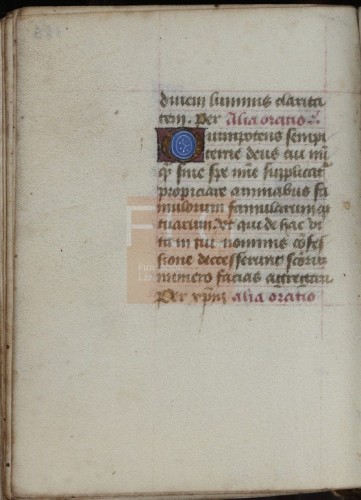 diuem luminis clarita
tem. Per Alia oratio
Omnipotens sempi
terne deus cui nūq̄
q̄ sine spe mīe supplicat̄
propiciare animabus fa
mulorum famularumq̄
tuarum. Vt qui de hac vi
ta in tui nominis cōfes
sione decesserunt scōrum
numero facias aggregari
Per xp̄m alia oratio